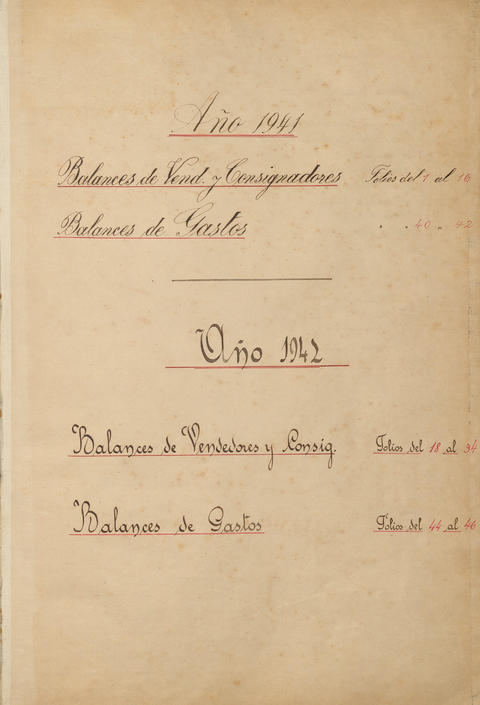 Año 1941
Balances de Vend. y Consignadores Folios del 1 al 16
Balances de Gastos " " 40 " 42
Año 1942
Balances de Vendedores y Consig. Folios del 18 al 34
Balances de Gastos Folios del 44 al 46